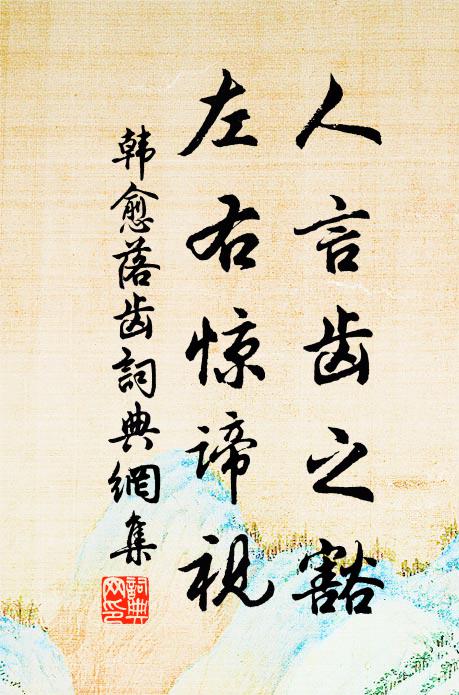 人言齿之豁
左右惊谛视
韩愈落齿詞典網集
詞典
网印